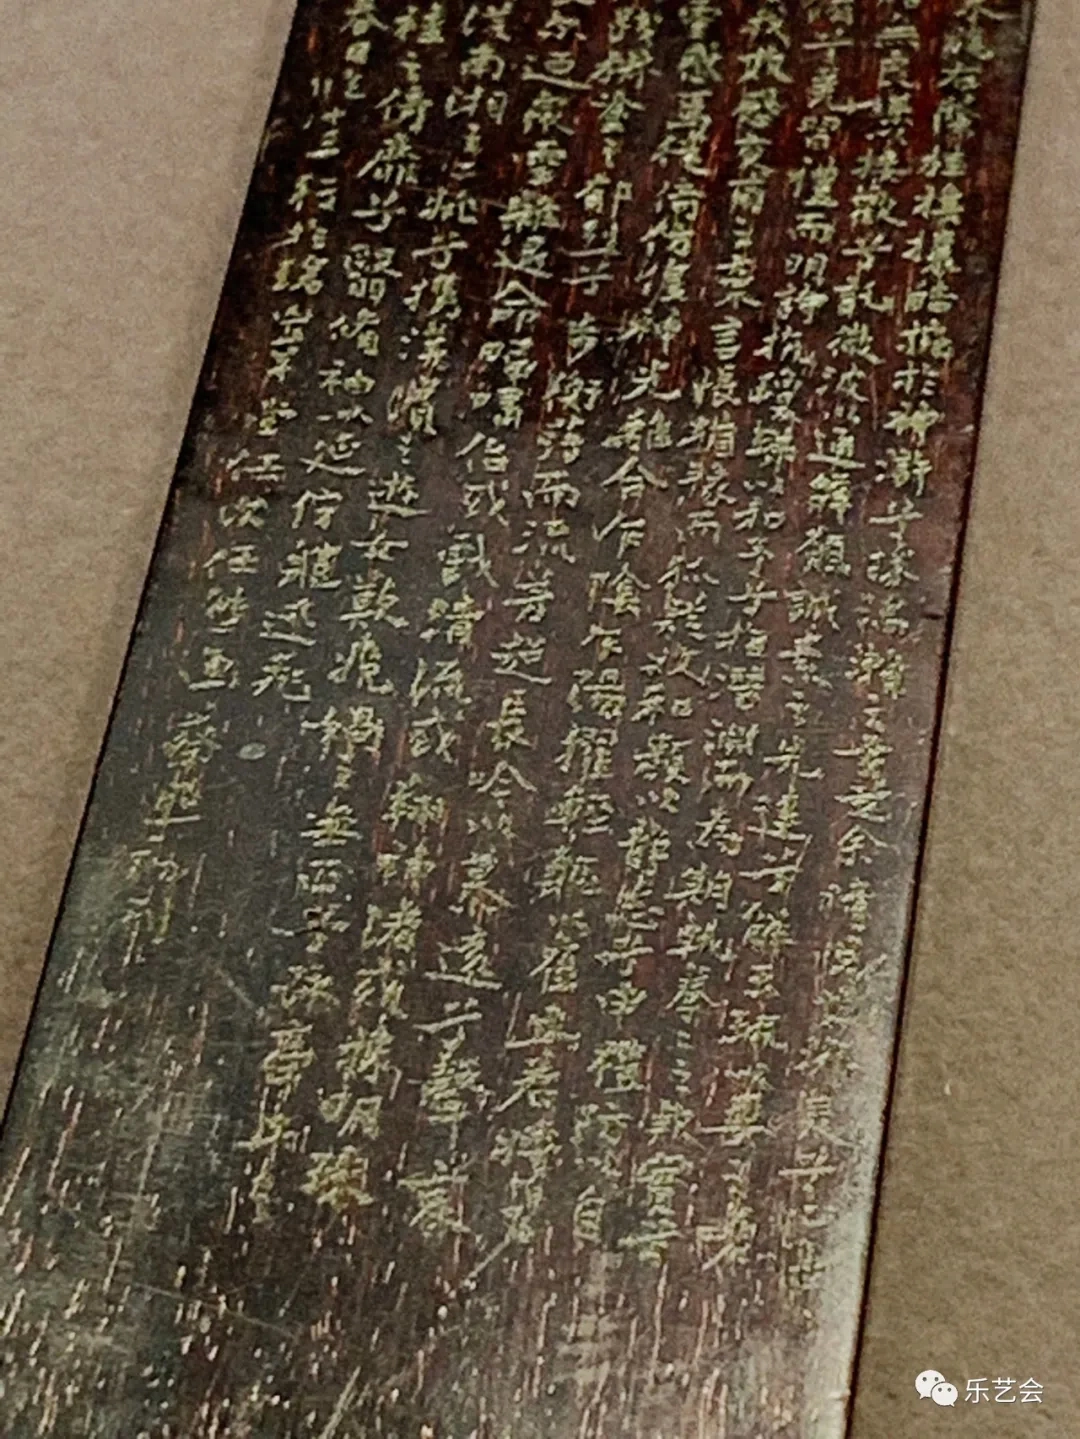 旄右蔭桂旗攘皓捥於神滸兮采湍瀨之玄芝余情悅其淑美兮心
無良媒以接歡兮託微波以通辭願誠素之先達兮解玉珮以要之嗟
脩兮羌習禮而明詩抗瓊珶以和予兮指潛淵而為期執拳拳之款實兮
我欺感交甫之棄言悵猶豫而狐疑收和顏以靜志兮申禮防以自
靈感焉徙倚傍徨神光離合乍陰乍陽擢輕軀以鶴立若將飛
踐椒塗之郁烈兮步衡薄而流芳超長吟以慕遠兮聲哀
爾迺眾靈雜遝命儔嘯侶或戲清流或翔神渚或採明珠
從南湘之二妃兮攜漢濱之遊女歎匏媧之無匹兮詠牽牛
袿之倚靡兮翳脩袖以延佇體迅飛
春日 十三行於 堂 任
乐艺会